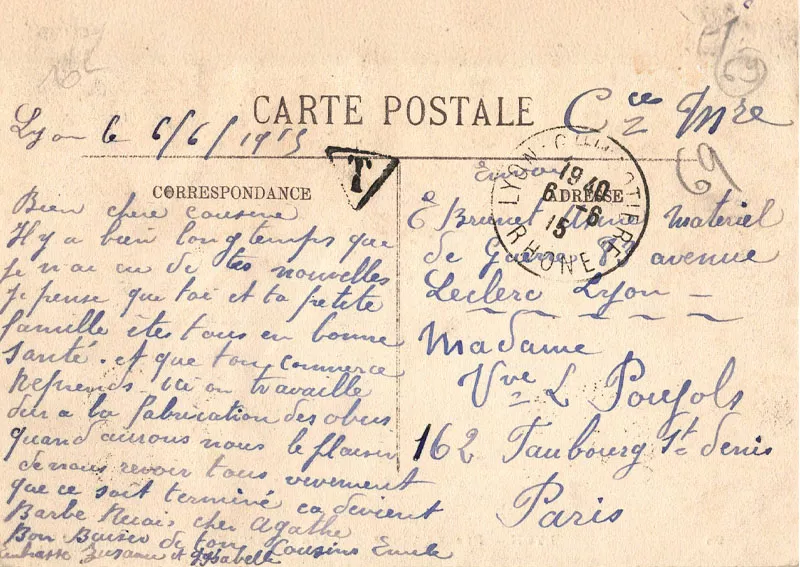 CARTE POSTALE
Cce Mre
Lyon le 6/6/1915
T
LYON-GUILLOTIERE
19 40
6 - 6
15
RHONE
CORRESPONDANCE
ADRESSE
Envoi
E Brunet Usine Materiel
de Guerre 8 avenue
Leclerc Lyon
Madame
Vve L Poujols
162 Faubourg St denis
Paris
Bien chere cousine
Il y a bien longtemps que
je n'ai eu de tes nouvelles
Je pense que toi et ta petite
famille êtes tous en bonne
Santé. et que ton commerce
Reprends ici on travaille
dur a la fabrication des obus
quand aurons nous le plaisir
de nous revoir tous vivement
que ce soit terminé ca devient
Barbe cher Agathe
Bon Baiser de ton Cousins Emile
embrasse Suzanne et Ysabelle